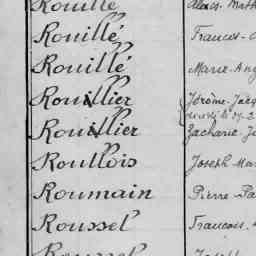 Rouillé Alexis-Math
Rouillé Frances-
Rouillé Marie-Ang
Rouillier Jérôme-Jacq
Rouillier Zacharie-J
Roullois Joseph Mar
Roumain Pierre-Pa
Roussel Francois-
Roussel Joseph